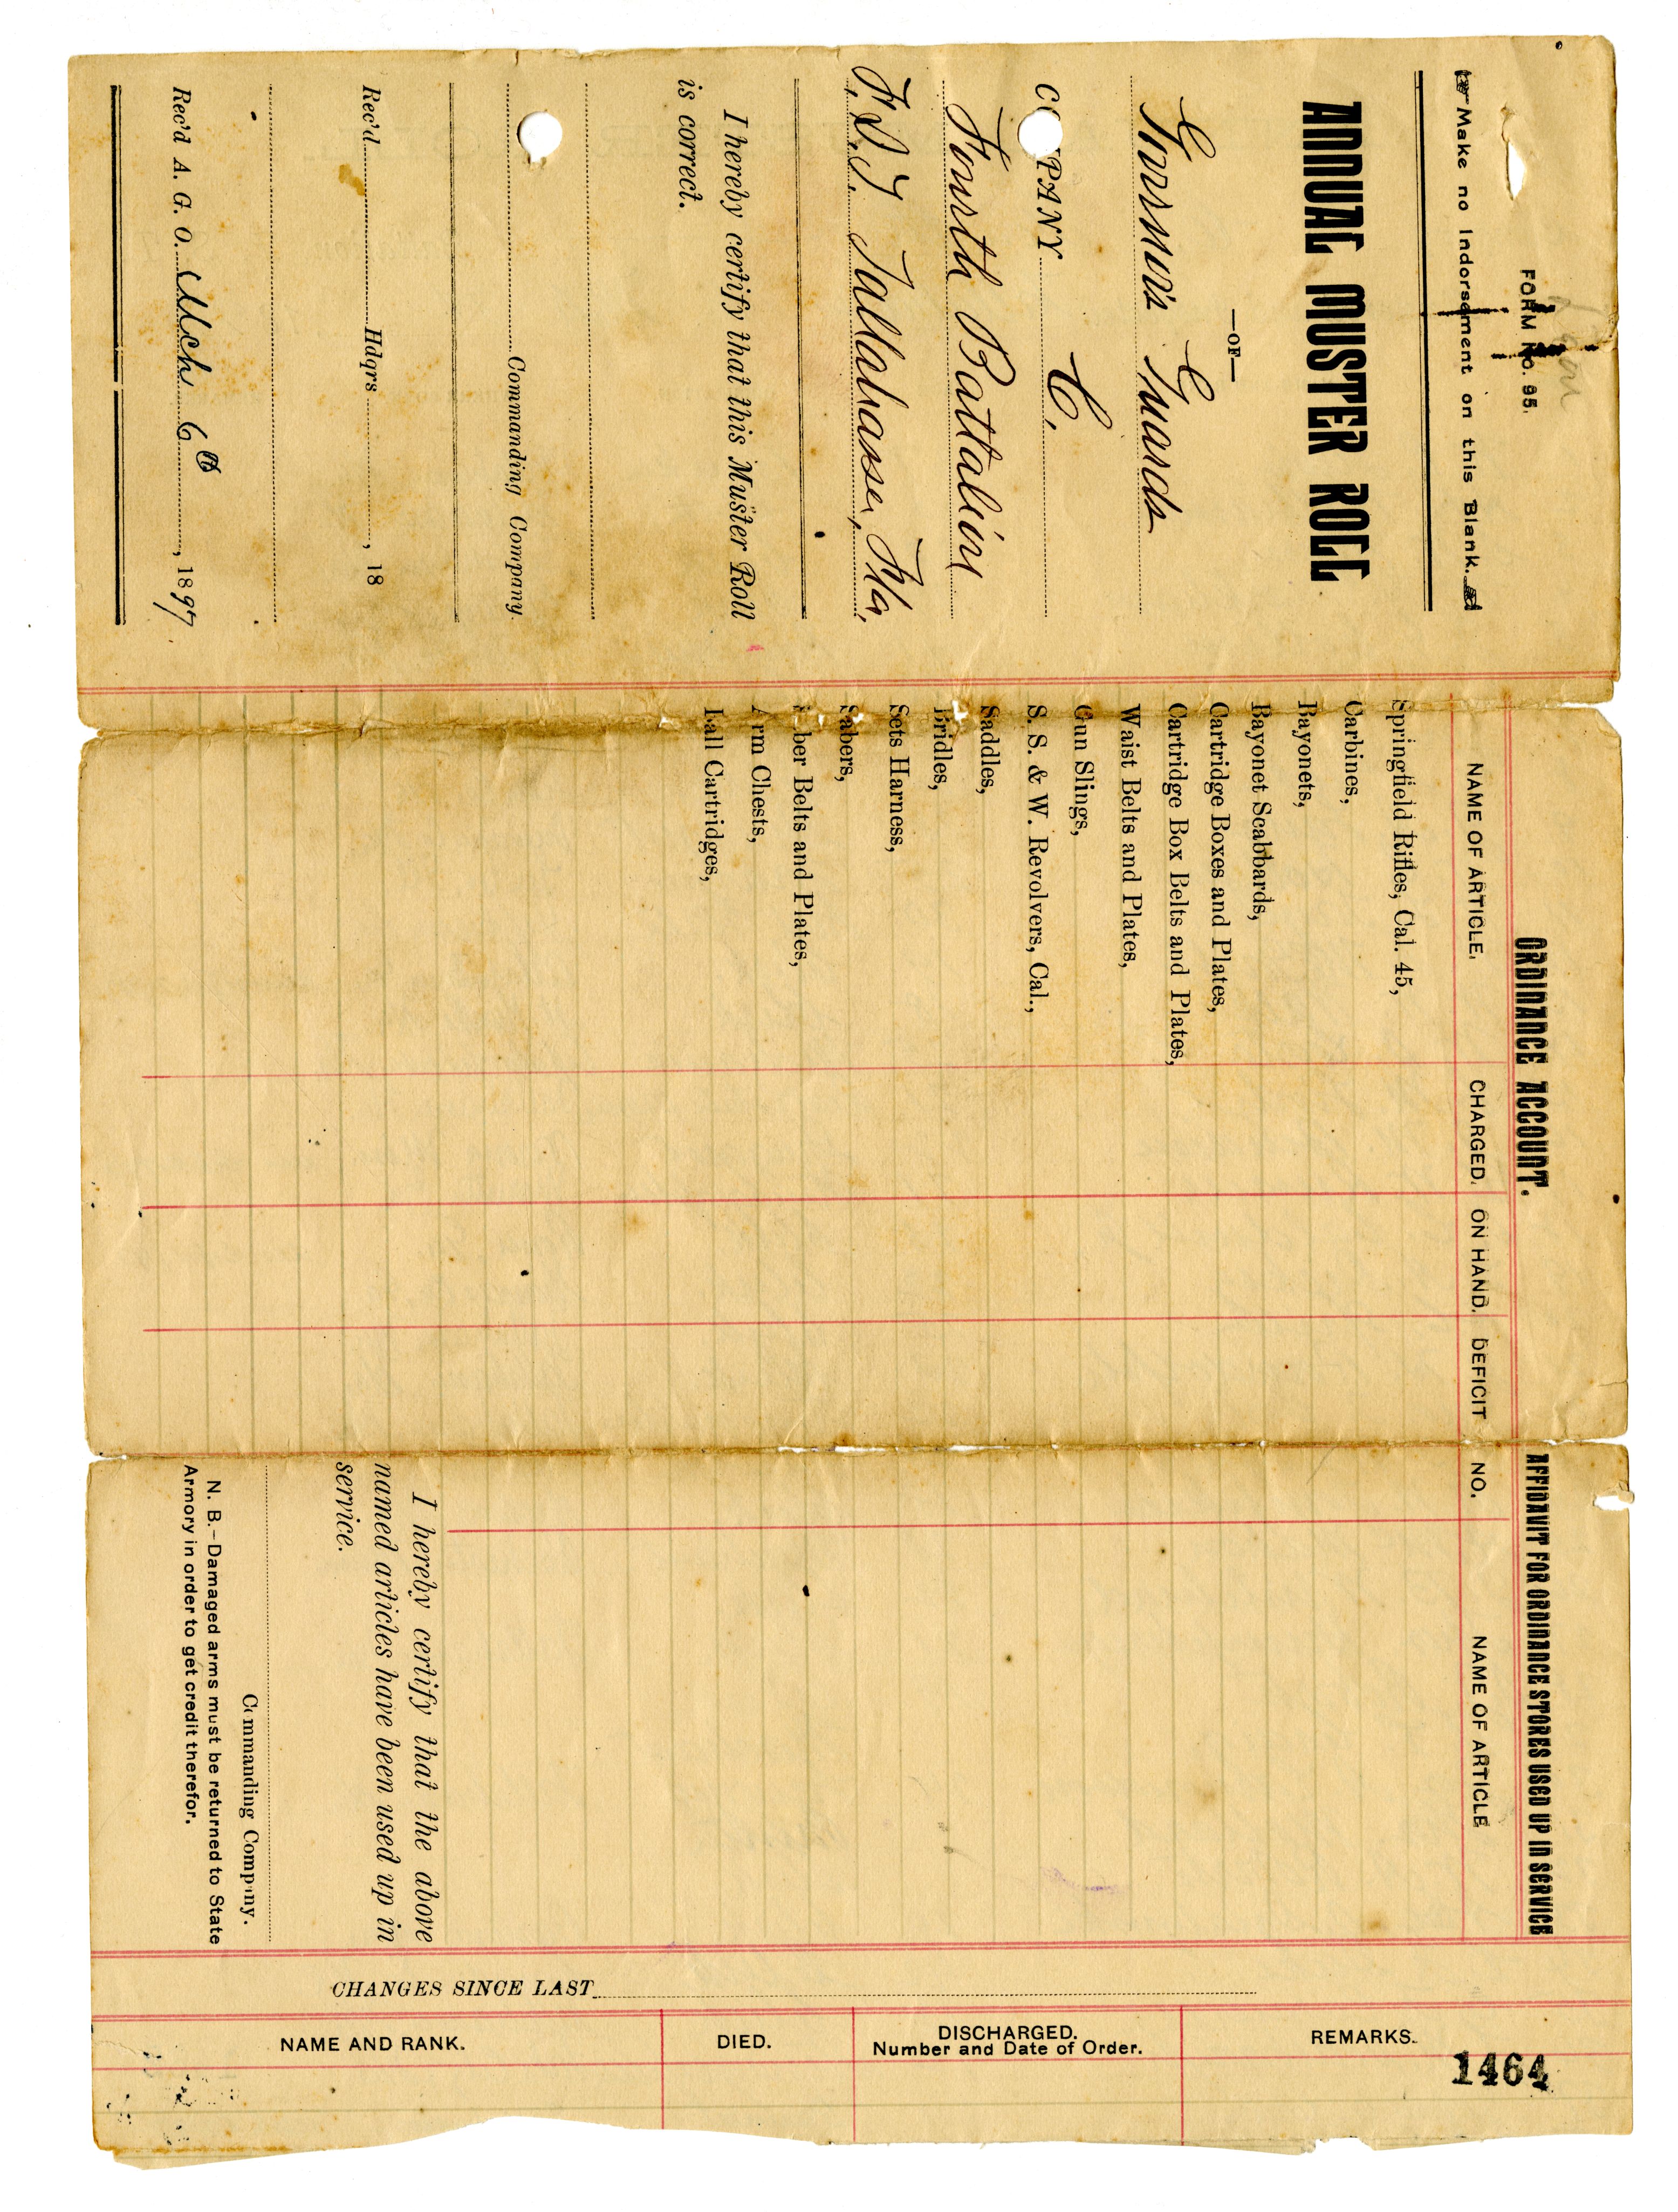 FORM No. 95.
Make no Indorsement on this Blank.
ANNUAL MUSTER ROLL
—OF—
Governor's Guards
COMPANY C.
Fourth Battalion
F.S.T. Tallahassee, Fla,
I hereby certify that this Muster Roll
is correct.
Commanding Company.
Rec'd Hdqrs , 18
Rec'd A. G. O. Mch 6th , 1897
ORDINANCE ACCOUNT.
NAME OF ARTICLE. CHARGED. ON HAND. DEFICIT
Springfield Rifles, Cal. 45,
Carbines,
Bayonets,
Bayonet Scabbards,
Cartridge Boxes and Plates,
Cartridge Box Belts and Plates,
Waist Belts and Plates,
Gun Slings,
S. S. & W. Revolvers, Cal.,
Saddles,
Bridles,
Sets Harness,
Sabers,
Saber Belts and Plates,
Arm Chests,
Ball Cartridges,
AFFIDAVIT FOR ORDINANCE STORES USED UP IN SERVICE
NO. NAME OF ARTICLE
I hereby certify that the above
named articles have been used up in
service.
Commanding Company.
N. B.—Damaged arms must be returned to State
Armory in order to get credit therefor.
CHANGES SINCE LAST
NAME AND RANK. DIED. DISCHARGED. REMARKS.
Number and Date of Order.
1464